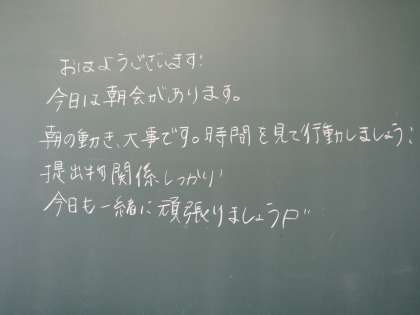 おはようございます!
今日は朝会があります。
朝の動き、大事です。時間を見て行動しましょう!
提出物関係しっかり!
今日も一緒に頑張りましょう